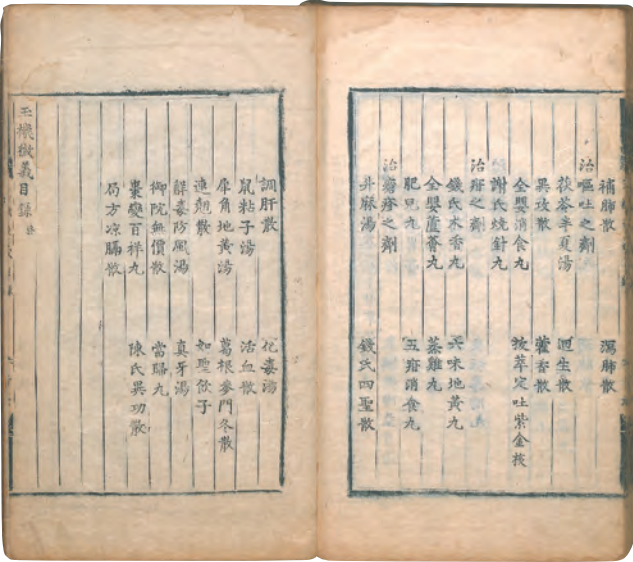 補肺散　瀉肺散
治嘔吐之劑
茯苓半夏湯　迴生散
異攻散　藿香散
全嬰消食丸　拔萃定吐紫金核
謝氏燒針丸
治疳之劑
錢氏木香丸　六味地黃丸
全嬰蘆薈丸　蒸雞丸
肥兒丸　五疳消食丸
治瘡疹之劑
升麻湯　錢氏四聖散
調肝散　化毒湯
鼠粘子湯　活血散
犀角地黃湯　葛根麥門冬散
連翹散　如聖飲子
解毒防風湯　真牙湯
御院無價散　當歸丸
棗變百祥丸　陳氏異功散
局方涼膈散
玉機微義目錄終